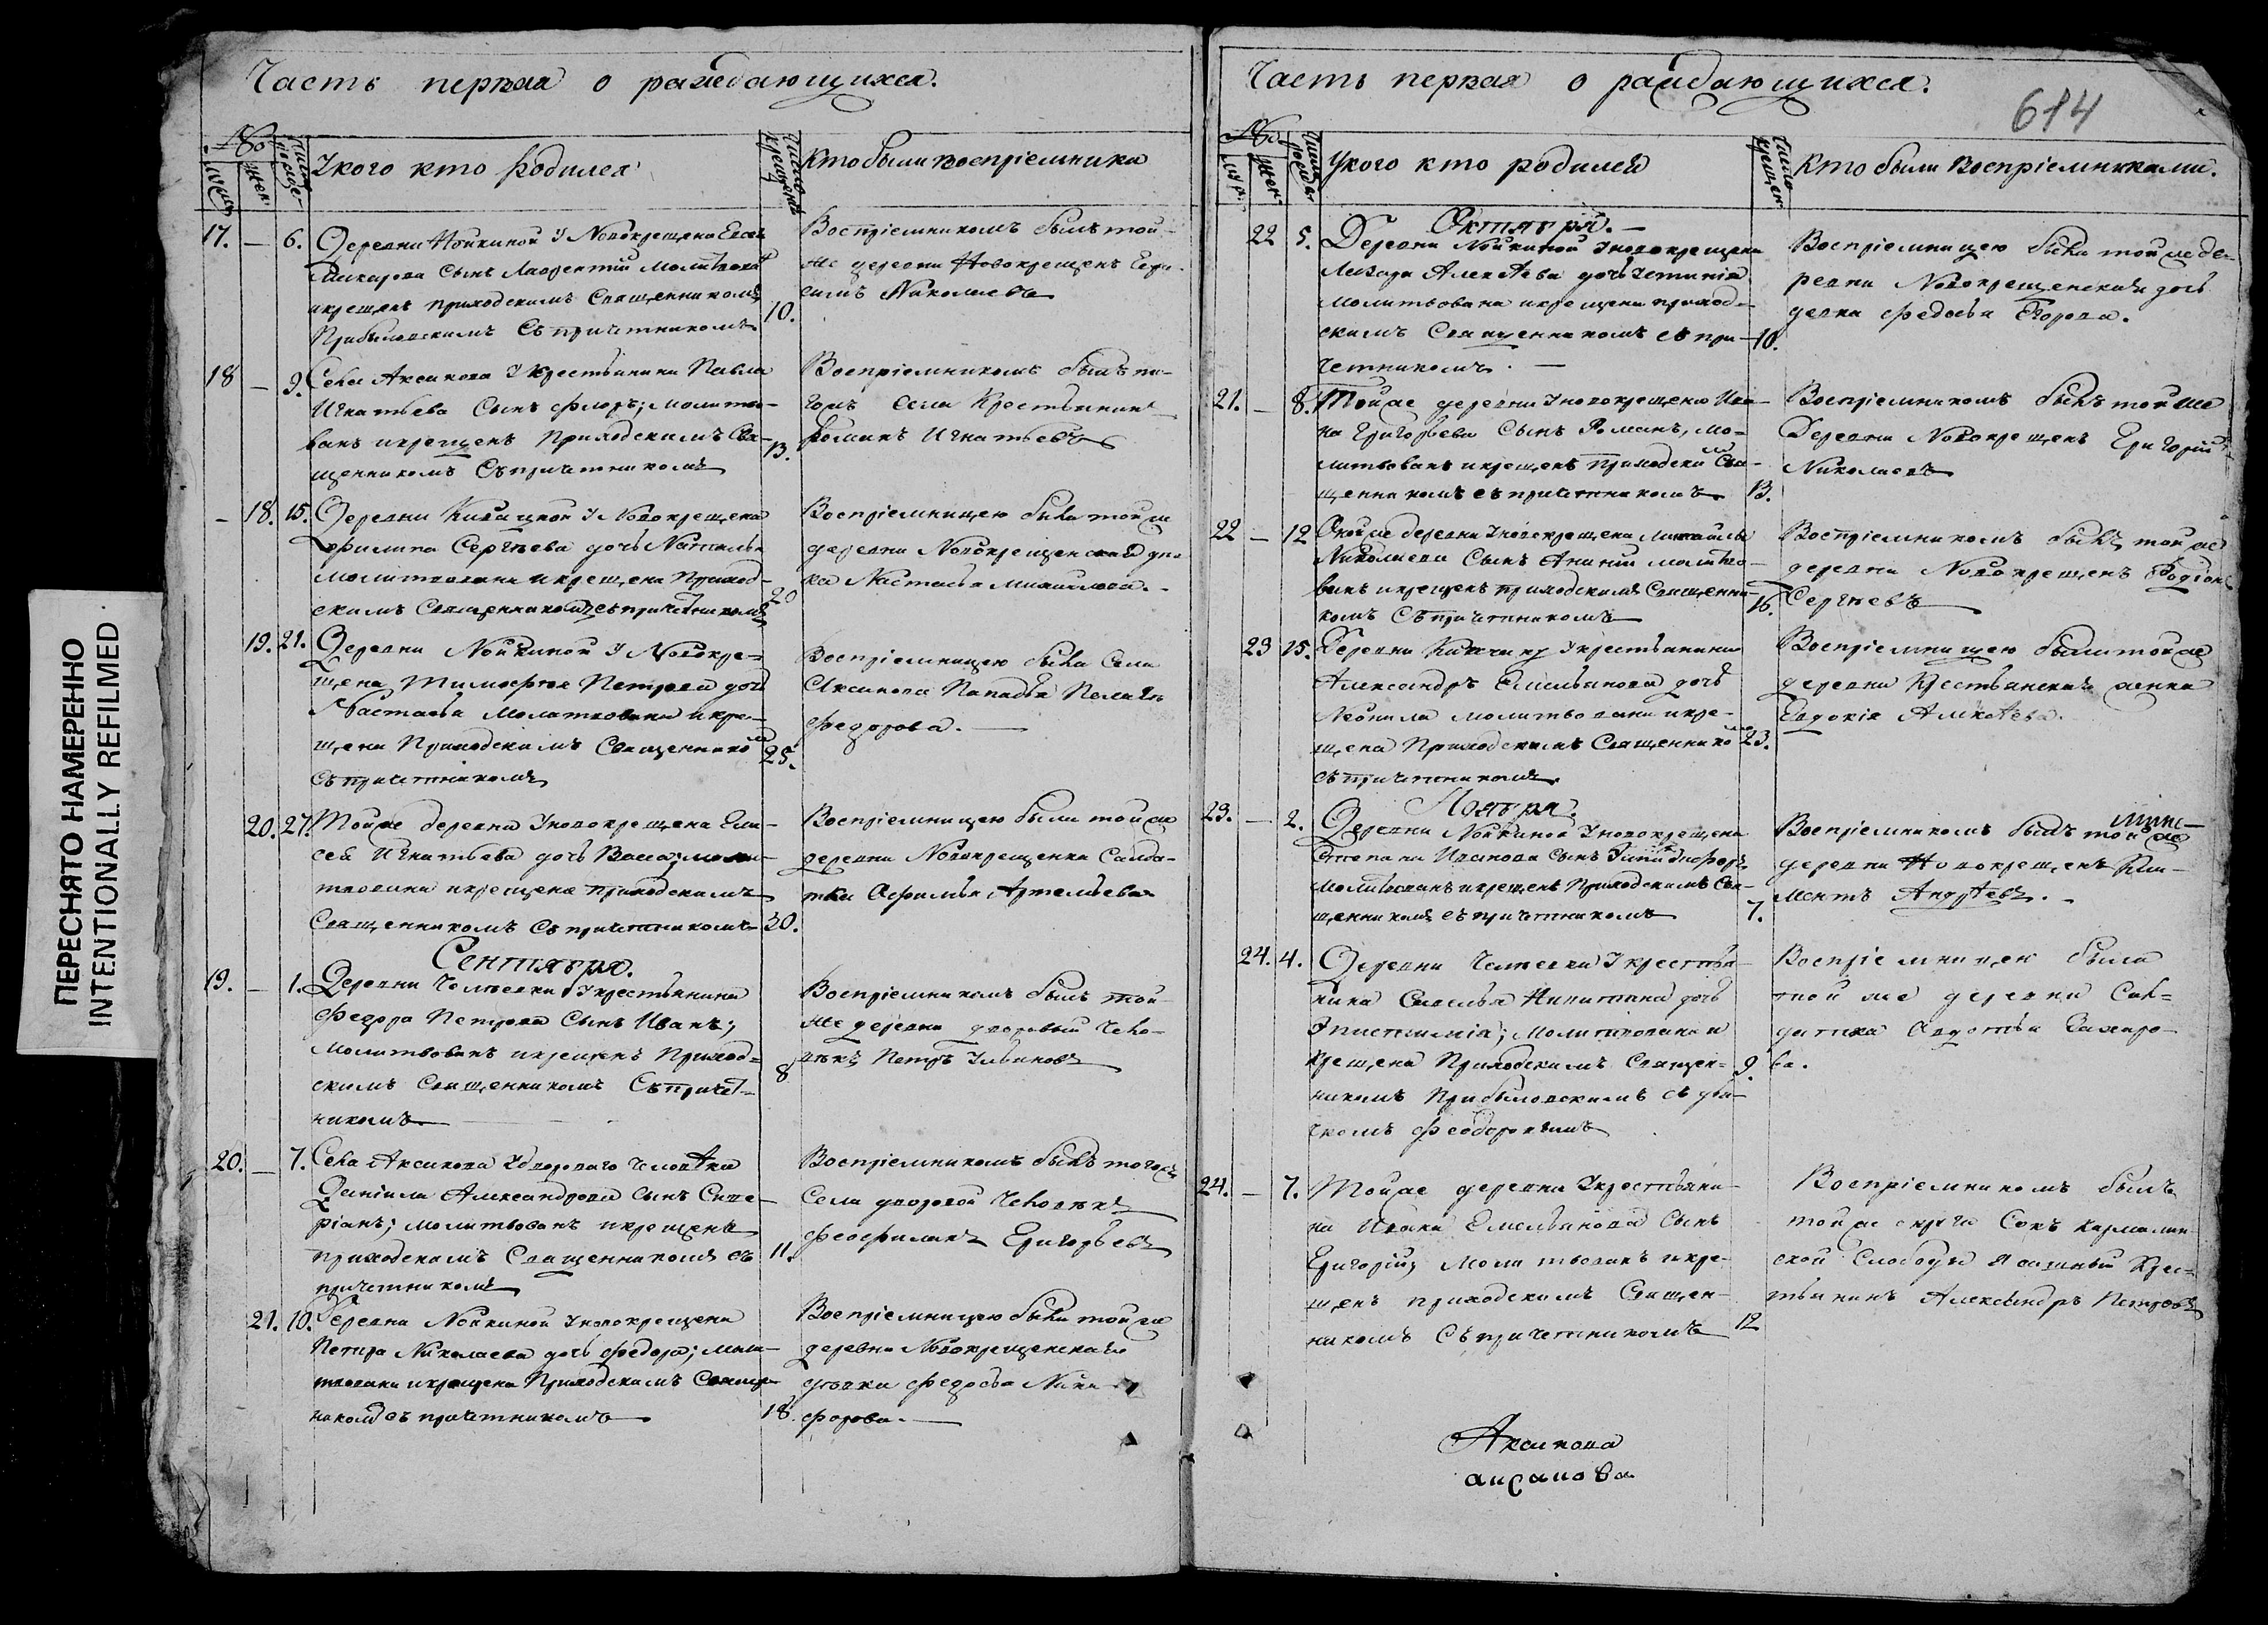 ПЕРЕСНЯТО НАМЕРЕННО
INTENTIONALLY REFILMED
Часть первая о раждающихся.
№
Укого кто родился
Число крещения
Кто были воспрiемники
17. — 6. Деревни Нойкиной У Новокрещена
сынъ Лаврентiй молитвованъ
и крещенъ приходскимъ Священникомъ
Прибыловскимъ Съ причетникомъ
10.
Воспрiемникомъ былъ той
же деревни Новокрещенъ Гера-
симъ Николаевъ
18 — 9. Села Аксакова У Крестьянина Павла
Игнатьева Сынъ Флоръ; молитво-
ванъ и крещенъ Приходскимъ Свя-
щенникомъ Съ причетникомъ
13.
Воспрiемникомъ былъ
села Крестьянинъ
Романъ Игнатьевъ
— 18. 15. Деревни У Новокрещена
Филипа Сергѣева дочь Наталья
молитвована и крещена Приход-
скимъ Священникомъ съ причетникомъ
20
Воспрiемницею была той же
деревни Новокрещенская
Настасья Михайлова.
19. 21. Деревни Нойкиной У Новокре-
щена Тимофея Петрова дочь
Настасья Молитвована и кре-
щена Приходскимъ Священником
съ причетникомъ
25.
Воспрiемницею была Села
Аксакова Попадья Пелагея
Федорова.
20. 27. Той же деревни У новокрещена Ели-
сея Игнатьева дочь Васса; моли-
твована и крещена приходскимъ
Священникомъ Съ причетникомъ
30.
Воспрiемницею была той же
деревни Новокрещенка Салда-
тка Афимья Артемьева
Сентября.
19. — 1. Деревни Челпевки У крестьянина
Федора Петрова Сынъ Иванъ;
молитвованъ и крещенъ Приход-
скимъ Священникомъ Съ причет-
никомъ
8
Воспрiемникомъ былъ той
же деревни дворовый Чело-
вѣкъ Петръ Ульяновъ
20. — 7. Села Аксакова У дворового человѣка
Данiила Александрова сынъ Севе-
рiанъ; молитвованъ и крещенъ
приходскимъ Священникомъ съ
причетникомъ
11.
Воспрiемникомъ былъ тогожъ
Села дворовой Человѣкъ
Феофилактъ Григорьевъ
21. 10. Деревни Нойкиной У новокрещена
Петра Николаева дочь Федора; моли-
твована и крещена Приходскимъ Священ-
никомъ съ причетникомъ
18.
Воспрiемницею была той же
деревни Новокрещенская
дѣвка Федосья Ники-
форова.
Часть первая о раждающихся.
614
№
Укого кто родился
Число крещен
Кто были Воспрiемниками.
Октября.
22 5. Деревни Нойкиной У новокрещена
Лазаря Алексѣева дочь
молитвована и крещена приход-
скимъ Священникомъ съ при-
четникомъ.
10.
Воспрiемницею была той же де-
ревни Новокрещенская
девка Федосья Егорова.
21. — 8. Той же деревни У новокрещена Ива-
на Григорьева Сынъ Романъ, мо-
литвованъ и крещенъ приходским Свя-
щенникомъ съ причетникомъ
13.
Воспрiемникомъ былъ той же
Деревни Новокрещенъ Григорiй
Николаевъ
22 — 12 Той же деревни У новокрещена Михайлы
Николаева Сынъ Ананiй молитво-
ванъ и крещенъ приходскимъ Священни-
комъ Съ причетникомъ
16.
Воспрiемникомъ былъ той же
деревни Новокрещенъ Родiонъ
Сергѣевъ
23 15. Деревни У крестьянина
Александра Емельянова дочь
Неонила молитвована и кре-
щена Приходскимъ Священником
съ причетникомъ.
23.
Воспрiемницею была той же
деревни Крестьянская женка
Евдокiя Алексѣева.
Ноября.
23. — 2. Деревни Нойкиной У новокрещена
Степана Иванова сынъ
молитвованъ и крещенъ Приходскимъ Свя-
щенникомъ съ причетникомъ
7.
Воспрiемникомъ былъ той же
деревни Новокрещенъ Кли-
ментъ Андрѣевъ.
24. 4. Деревни Челпевки У крестья-
нина Савелья Никитина дочь
Епистимiя; Молитвована и
крещена Приходскимъ Священ-
никомъ Прибыловскимъ съ дья-
чкомъ Феодоровымъ
9.
Воспрiемницею была
той же деревни Сал-
датка Авдотья Захаро-
ва.
24. — 7. Той же деревни У крестьяни-
на Ивана Емельянова Сынъ
Григорiй, Молитвованъ и кре-
щенъ приходскимъ Священ-
никомъ Съ причетникомъ
12
Воспрiемникомъ былъ
той же округи Сокъ Кармалин-
ской Слободы Ясашный Крес-
тьянинъ Александръ Петровъ
Аксакова
аксакова